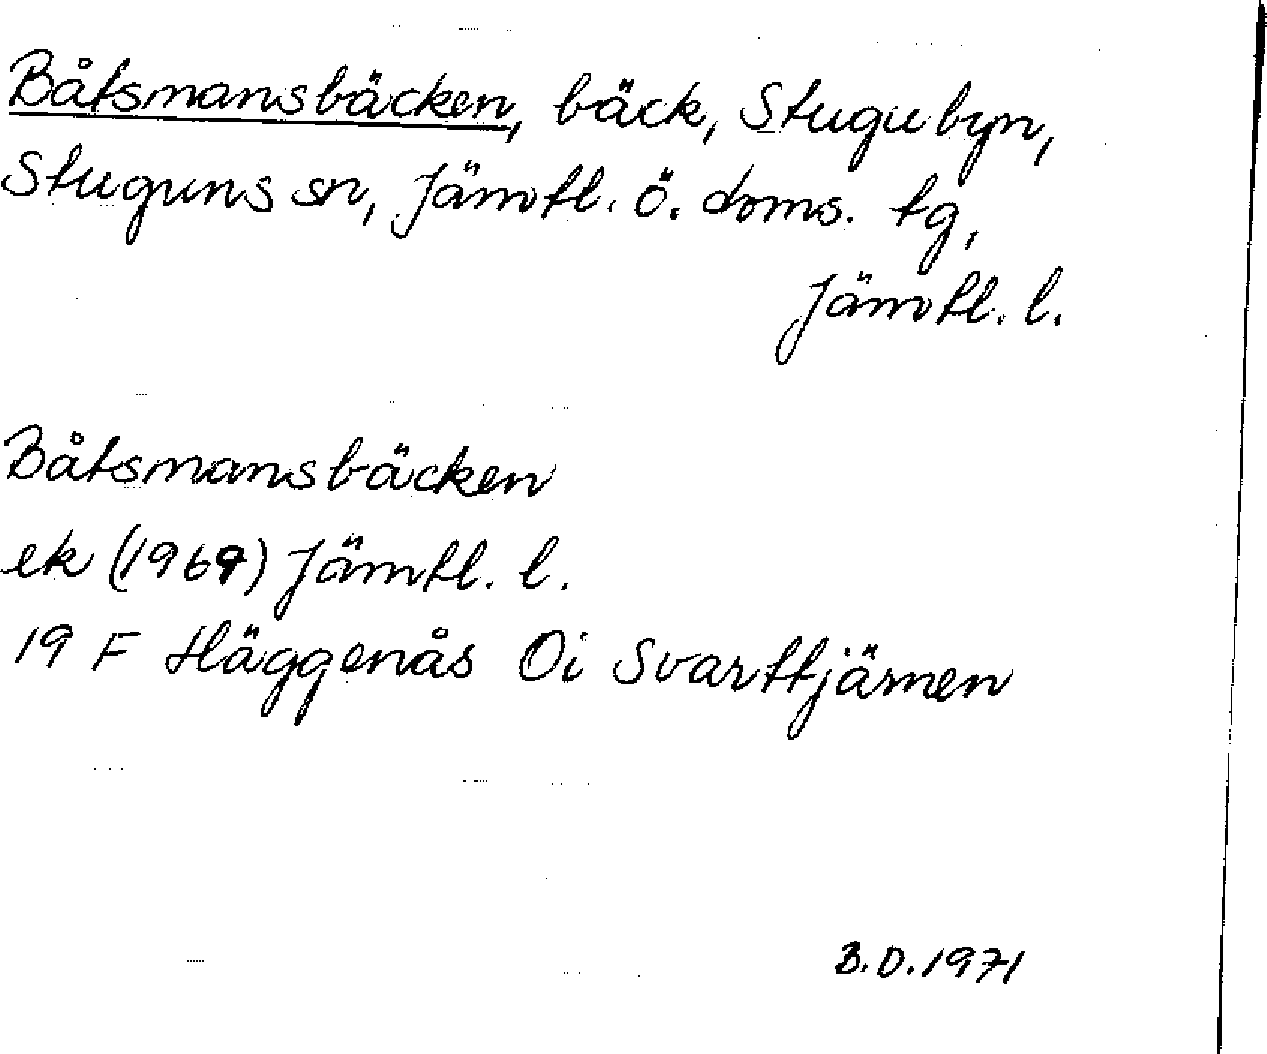 Båtsmansbäcken, bäck, Stugubyn,
Stuguns sn, Jämtl. ö. doms. tg,
Jämtl. l.
Båtsmansbäcken
ek (1969) Jämtl. l.
19 F Häggenås Oi Svarttjärnen
B.D. 1971